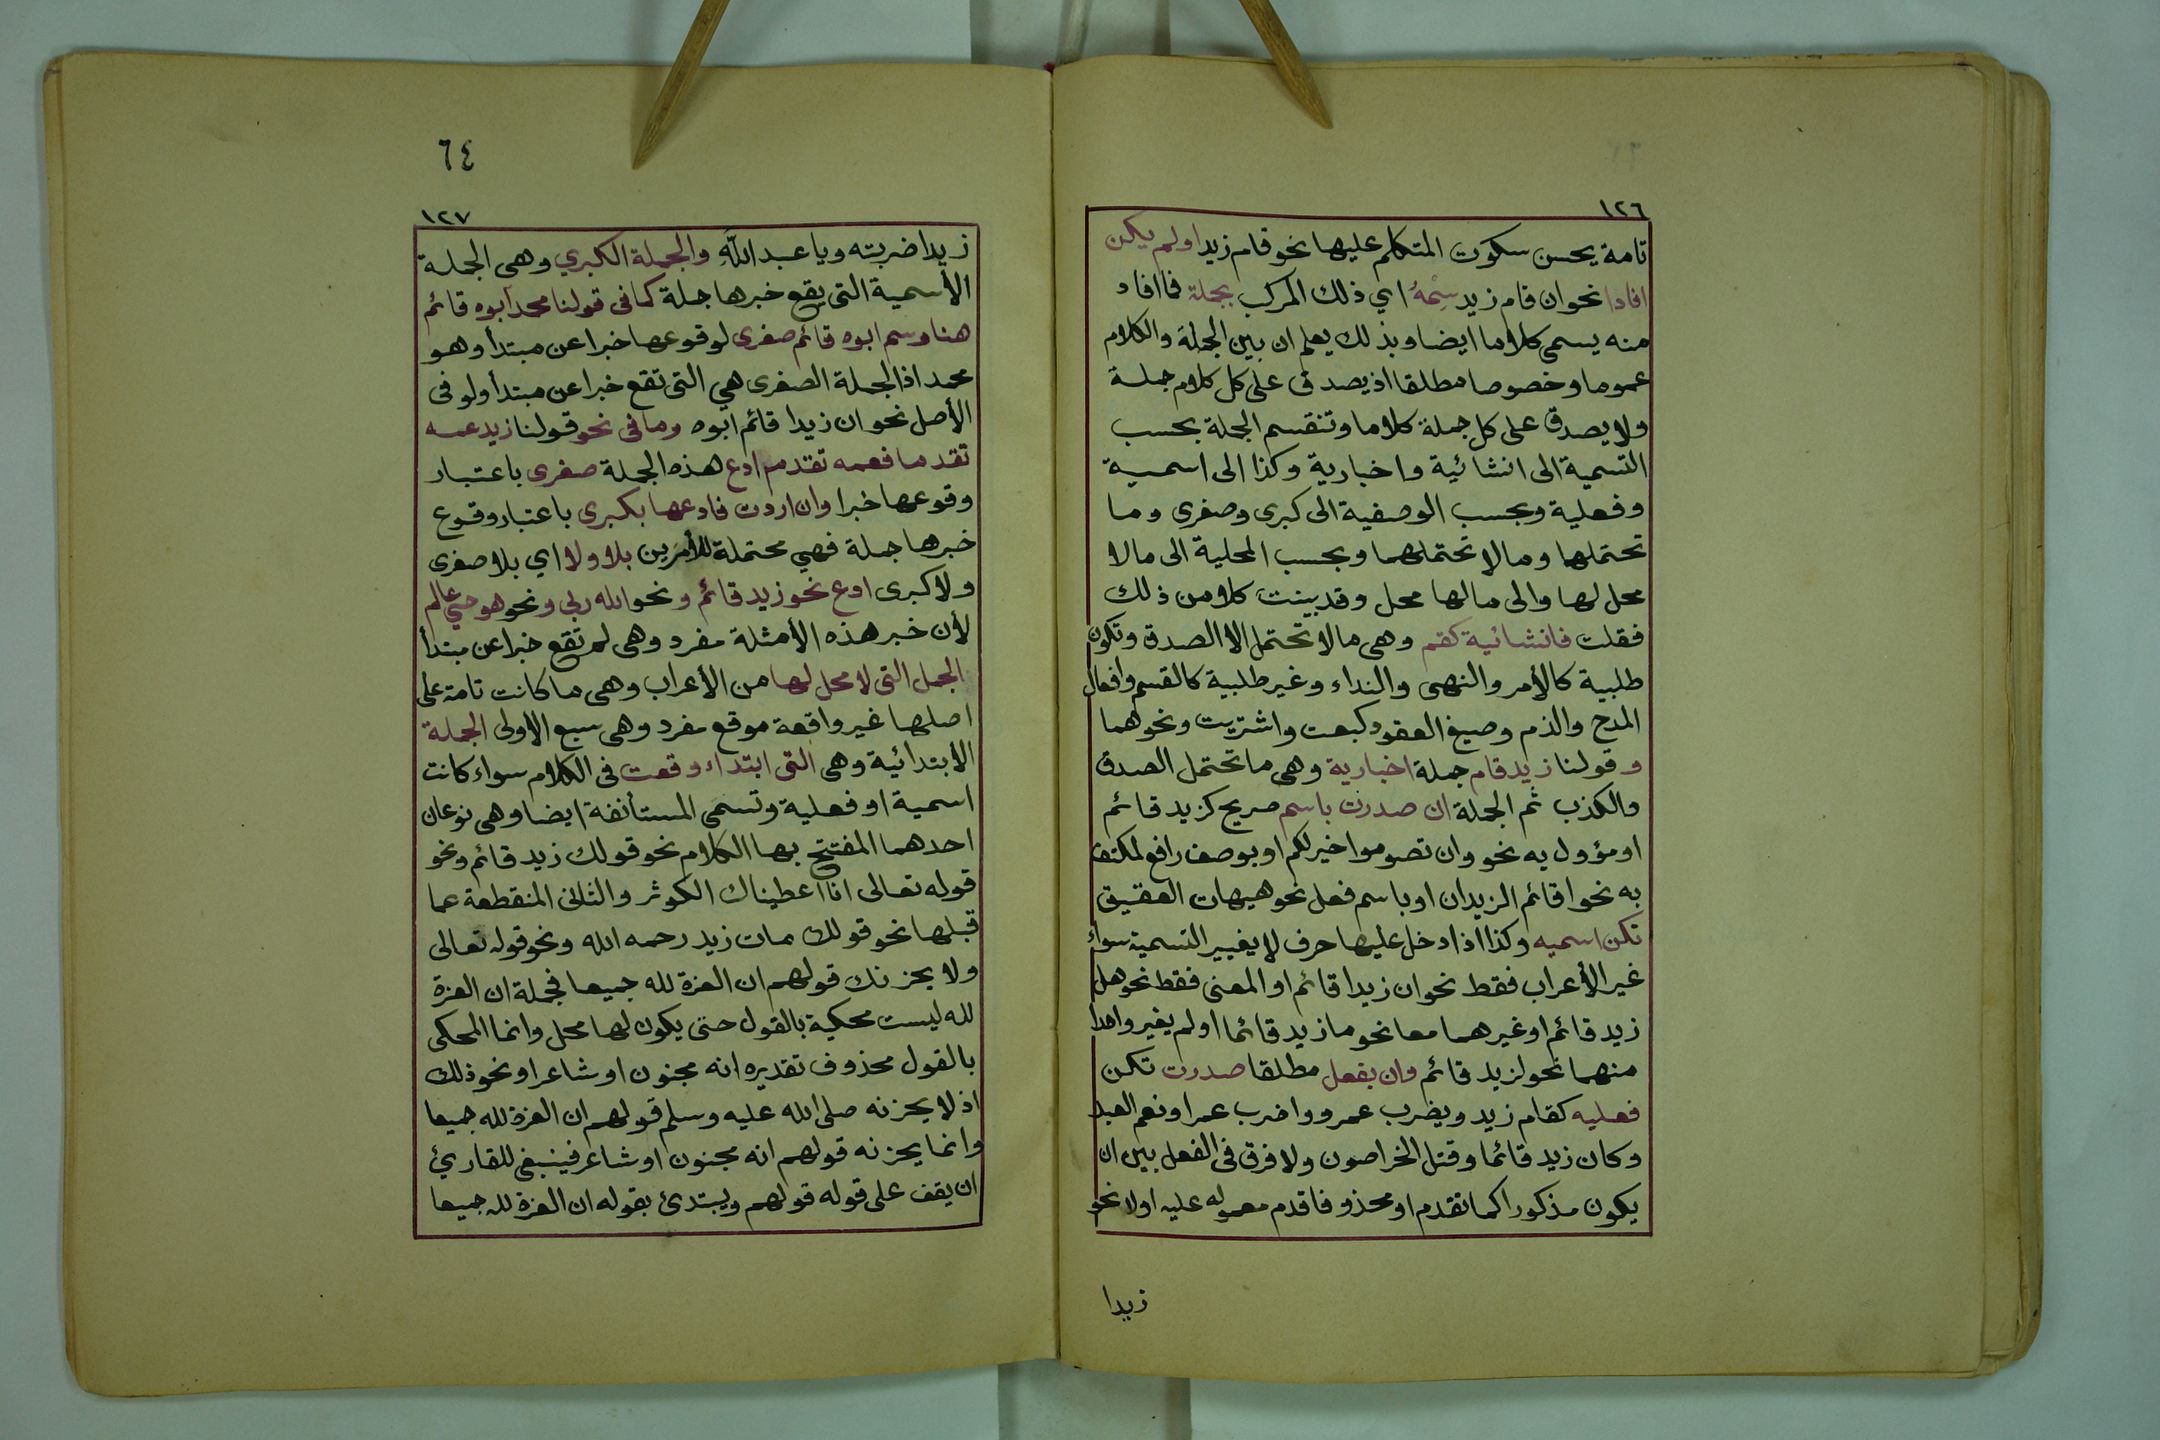 ١٢٦
تامة يحسن سكوت المتكلم عليها نحو قام زيد اولم يكن
افادا نحو ان قام زيد سِمْهُ اي ذلك المركب بجملة فما افاد
منه يسمى كلاما ايضا وبذلك يعلم ان بين الجملة والكلام
عموما وخصوصا مطلقا اذ يصدق على كل كلام جملة
ولا يصدق على كل جملة كلاما وتنقسم الجملة بحسب
التسمية الى انشائية واخبارية وكذا الى اسمية
وفعلية وبحسب الوصفية الى كبرى وصغرى وما
تحتملها وما لا تحتملهما وبحسب المحلية الى مالا
محل لها والى مالها محل وقد بينت كلا من ذلك
فقلت فانشائية كقم وهى ما لا تحتمل الا الصدق وتكون
طلبية كالأمر والنهى والنداء وغير طلبية كالقسم وافعال
المدح والذم وصيغ العقود كبعت واشتريت ونحوهما
وقولنا زيد قام جملة اخبارية وهى ما تحتمل الصدق
والكذب ثم الجملة ان صدرت باسم صريح كزيد قائم
او مؤول به نحو وان تصوموا خير لكم او بوصف رافع لمكتف
به نحو اقائم الزيدان او باسم فعل نحو هيهات العقيق
تكن اسميه وكذا اذا دخل عليها حرف لا يغيير التسمية سواء
غير الأعراب فقط نحو ان زيدا قائم او المعنى فقط نحو هل
زيد قائم او غيرهما معا نحو ما زيد قائما اولم يغير واحدا
منهما نحو لزيد قائم وان بفعل مطلقا صدرت تكن
فعليه كقام زيد ويضرب عمرو واضرب عمرا ونعم العبد
وكان زيد قائما وقتل الخراصون ولا فرق فى الفعل بين ان
يكون مذكورا كما تقدم او محذوفا قدم معموله عليه اولا نحو
زيدا
٦٤
١٢٧
زيدا ضربته ويا عبد اللّه والجملة الكبري وهى الجملة
الأسمية التى يقع خبرها جملة كما فى قولنا محمد ابوه قائم
هنا وسم ابوه قائم صغرى لوقوعها خبرا عن مبتدأ وهو
محمد اذ الجملة الصغرى هي التى تقع خبرا عن مبتدأ ولو فى
الأصل نحو ان زيدا قائم ابوه وما فى نحو قولنا زيد عمه
تقدما فعمه تقدم ادع هذه الجملة صغرى باعتبار
وقوعها خبرا وان اردت فادعها بكبرى باعتبار وقوع
خبرها جملة فهي محتملة للأمرين بلا ولا اي بلا صغرى
ولا كبرى ادع نحو زيد قائم ونحو الله ربي ونحو هو حي عالم
لأن خبر هذه الأمثلة مفرد وهى لم تقع خبرا عن مبتدأ
الجمل التى لا محل لها من الأعراب وهى ما كانت تامة على
اصلها غير واقعة موقع مفرد وهى سبع الاولى الجملة
الابتدائية وهى التى ابتداء وقعت فى الكلام سواء كانت
اسمية او فعلية وتسمى المستأنفة ايضا وهى نوعان
احدهما المفتتح بها الكلام نحو قولك زيد قائم ونحو
قوله تعالى انا اعطيناك الكوثر والثانى المنقطعة عما
قبلها نحو قولك مات زيد رحمه الله ونحو قوله تعالى
ولا يحزنك قولهم ان العزة لله جميعا فجملة ان العزة
لله ليست محكية بالقول حتى يكون لها محل وانما المحكى
بالقول محذوف تقديره انه مجنون او شاعر او نحو ذلك
اذ لا يحزنه صلى الله عليه وسلم قولهم ان العزة لله جميعا
وانما يحزنه قولهم انه مجنون او شاعر فينبغى للقارئ
ان يقف على قوله قولهم ويبتدئ بقوله ان العزة لله جميعا